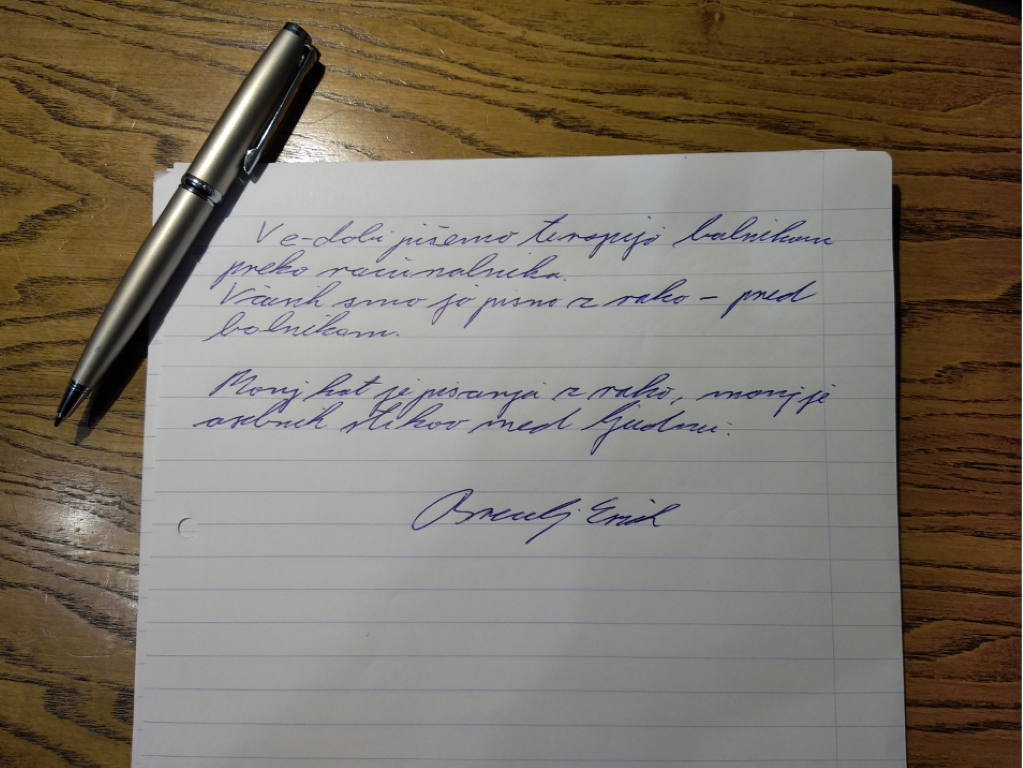 V e-dobi pišemo terapijo bolnikom
preko računalnika.
Včasih smo jo pisno z roko – pred
bolnikom.
Manj kot je pisanja z roko, manj je
osebnih stikov med ljudmi.
Erich